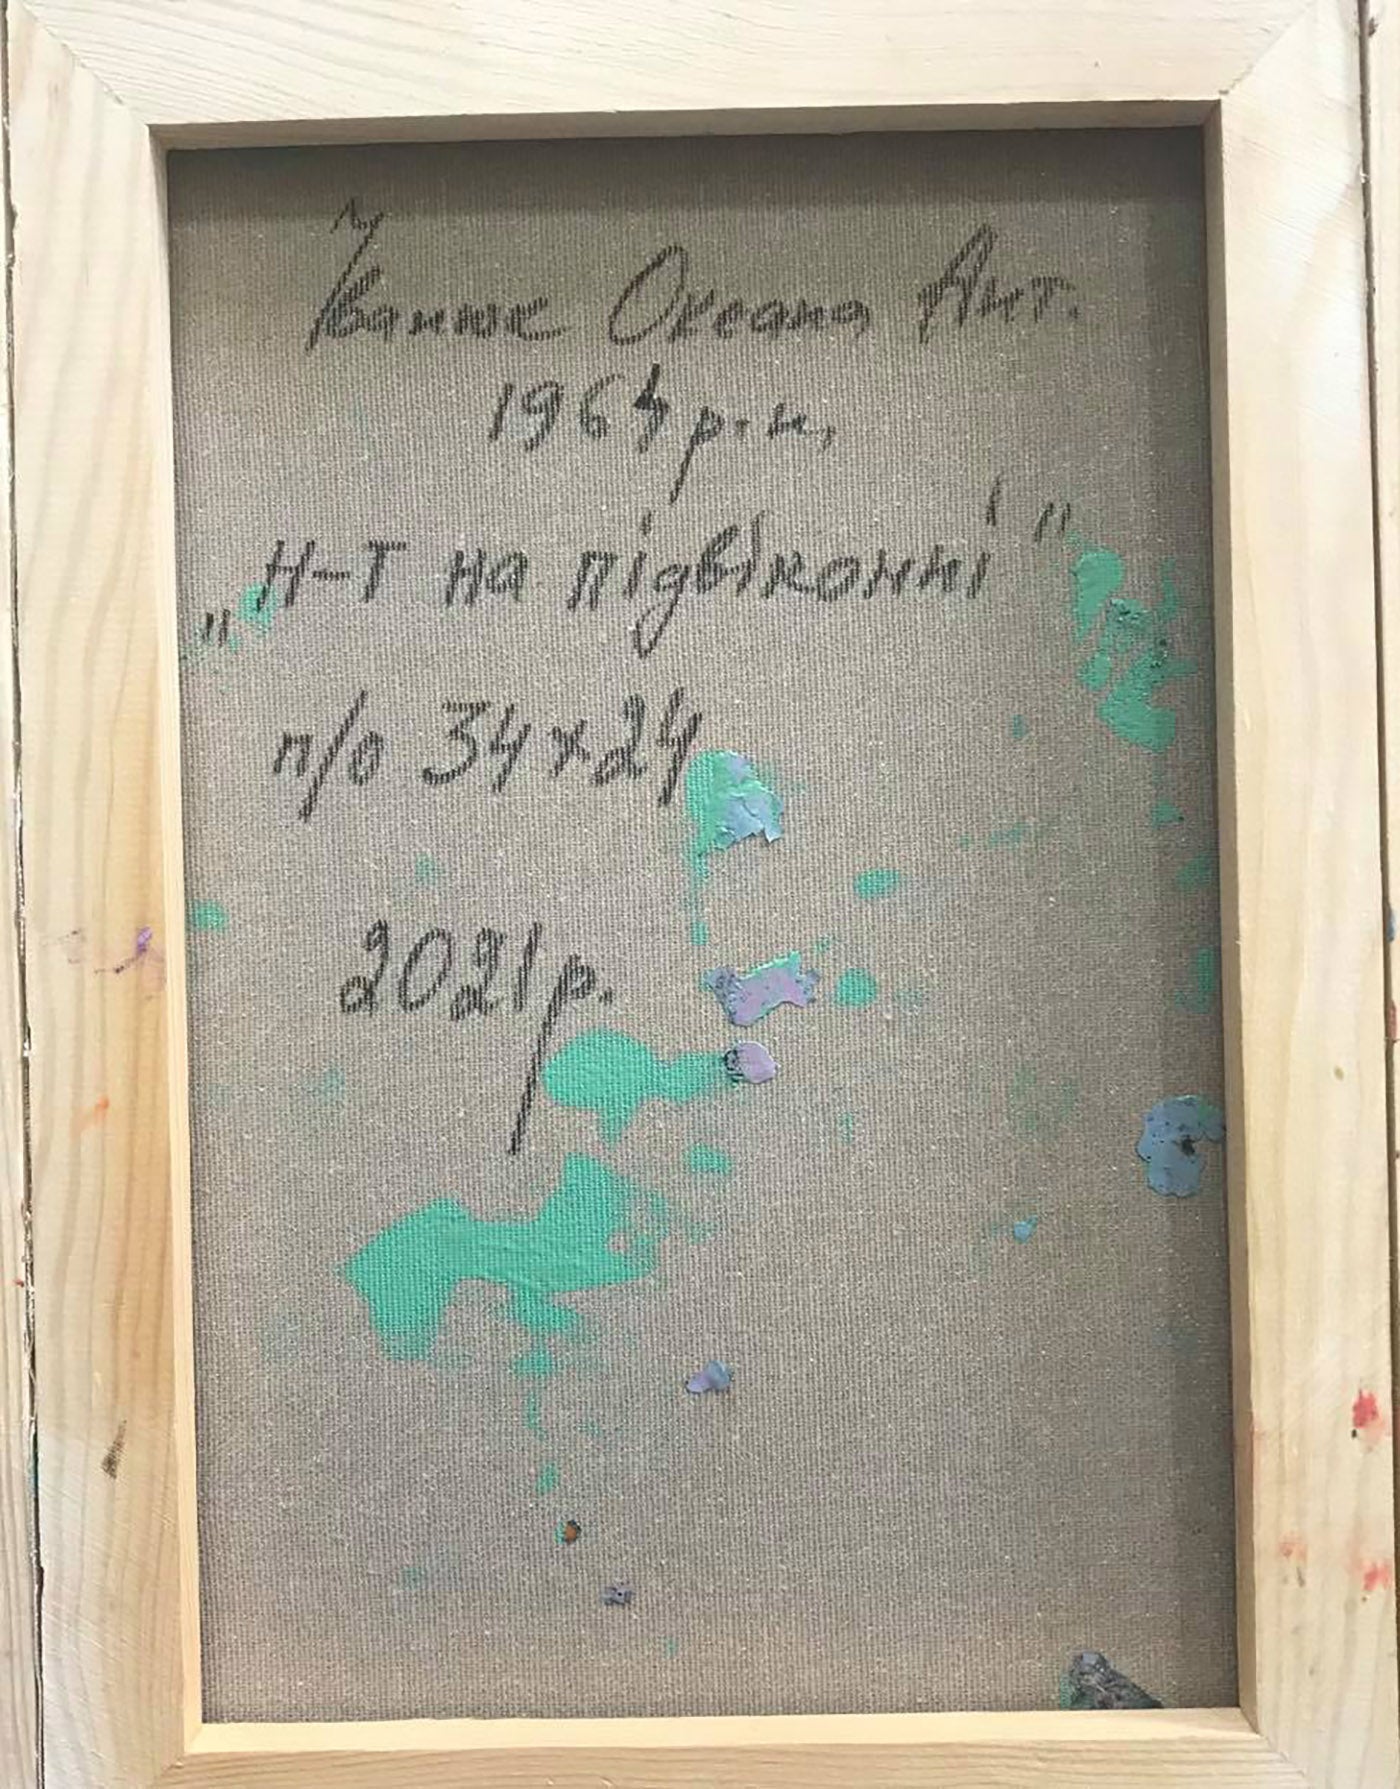 Іванюк Океана Ант.
1964 р.н.
„Н-Т на підвіконні"
п/о 34х24
2021р.